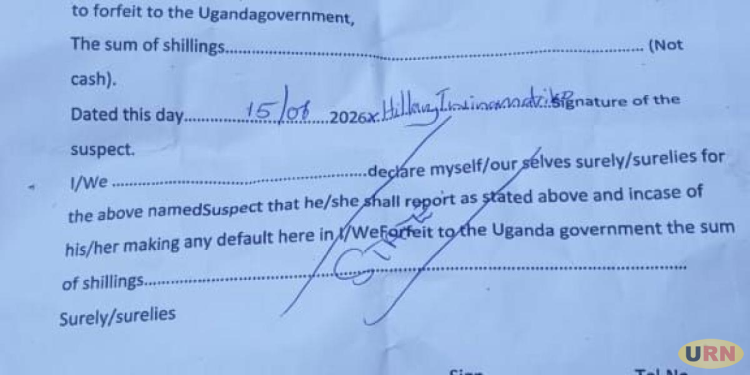 to forfeit to the Ugandagovernment,
The sum of shillings........................................................................ (Not
cash).
Dated this day.............15/08.......2026x Hillary signature of the
suspect.
I/We ..............................................declare myself/our selves surely/surelies for
the above namedSuspect that he/she shall report as stated above and incase of
his/her making any default here in I/WeForfeit to the Uganda government the sum
of shillings.........................................................................................
Surely/surelies
URN
Tel No